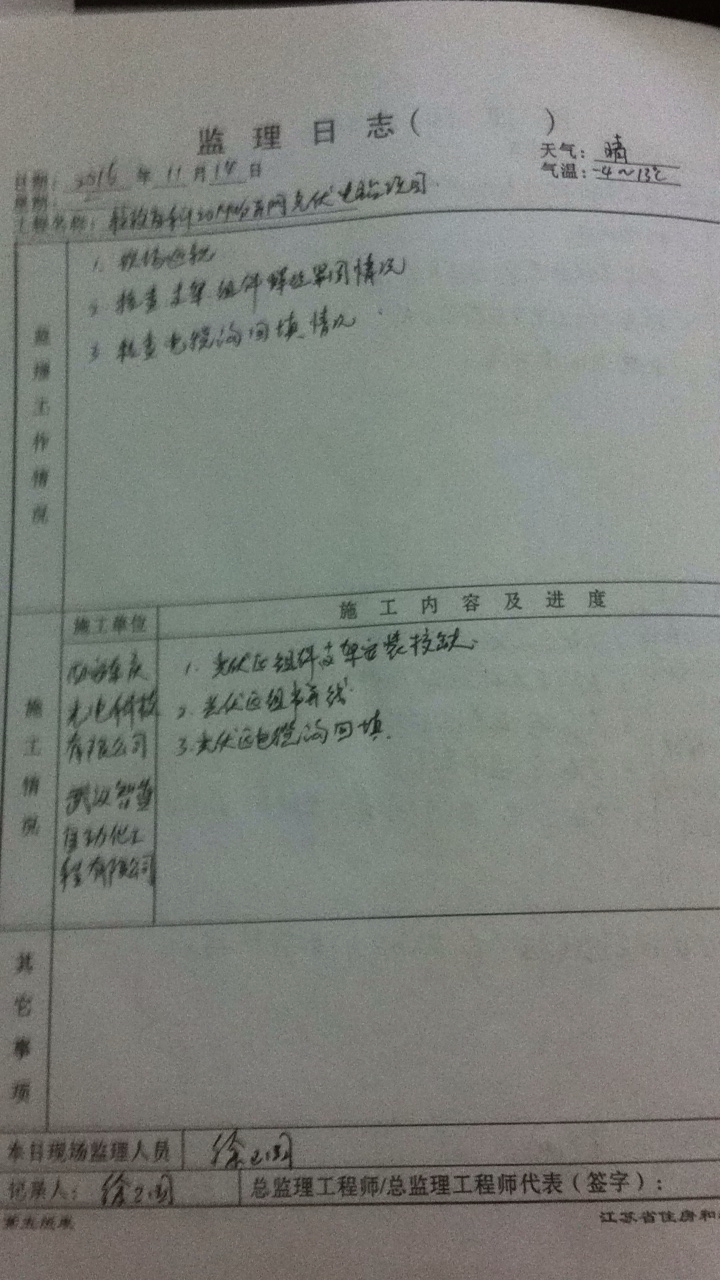 监理日志（ ）
天气：晴
日期：2016年11月14日
气温：-4～13℃
星期：
工程名称：
监理工作情况
1. 现场巡视
2. 检查支架组件螺丝紧固情况
3. 检查电缆沟回填情况
施工单位
施工内容及进度
施工情况
光电科技
有限公司
武汉智
自动化工
程有限公司
1. 光伏区组件支架安装
2. 光伏区组串
3. 光伏区电缆沟回填.
其它事项
本日现场监理人员 徐
记录人： 徐
总监理工程师/总监理工程师代表（签字）：
江苏省住房和